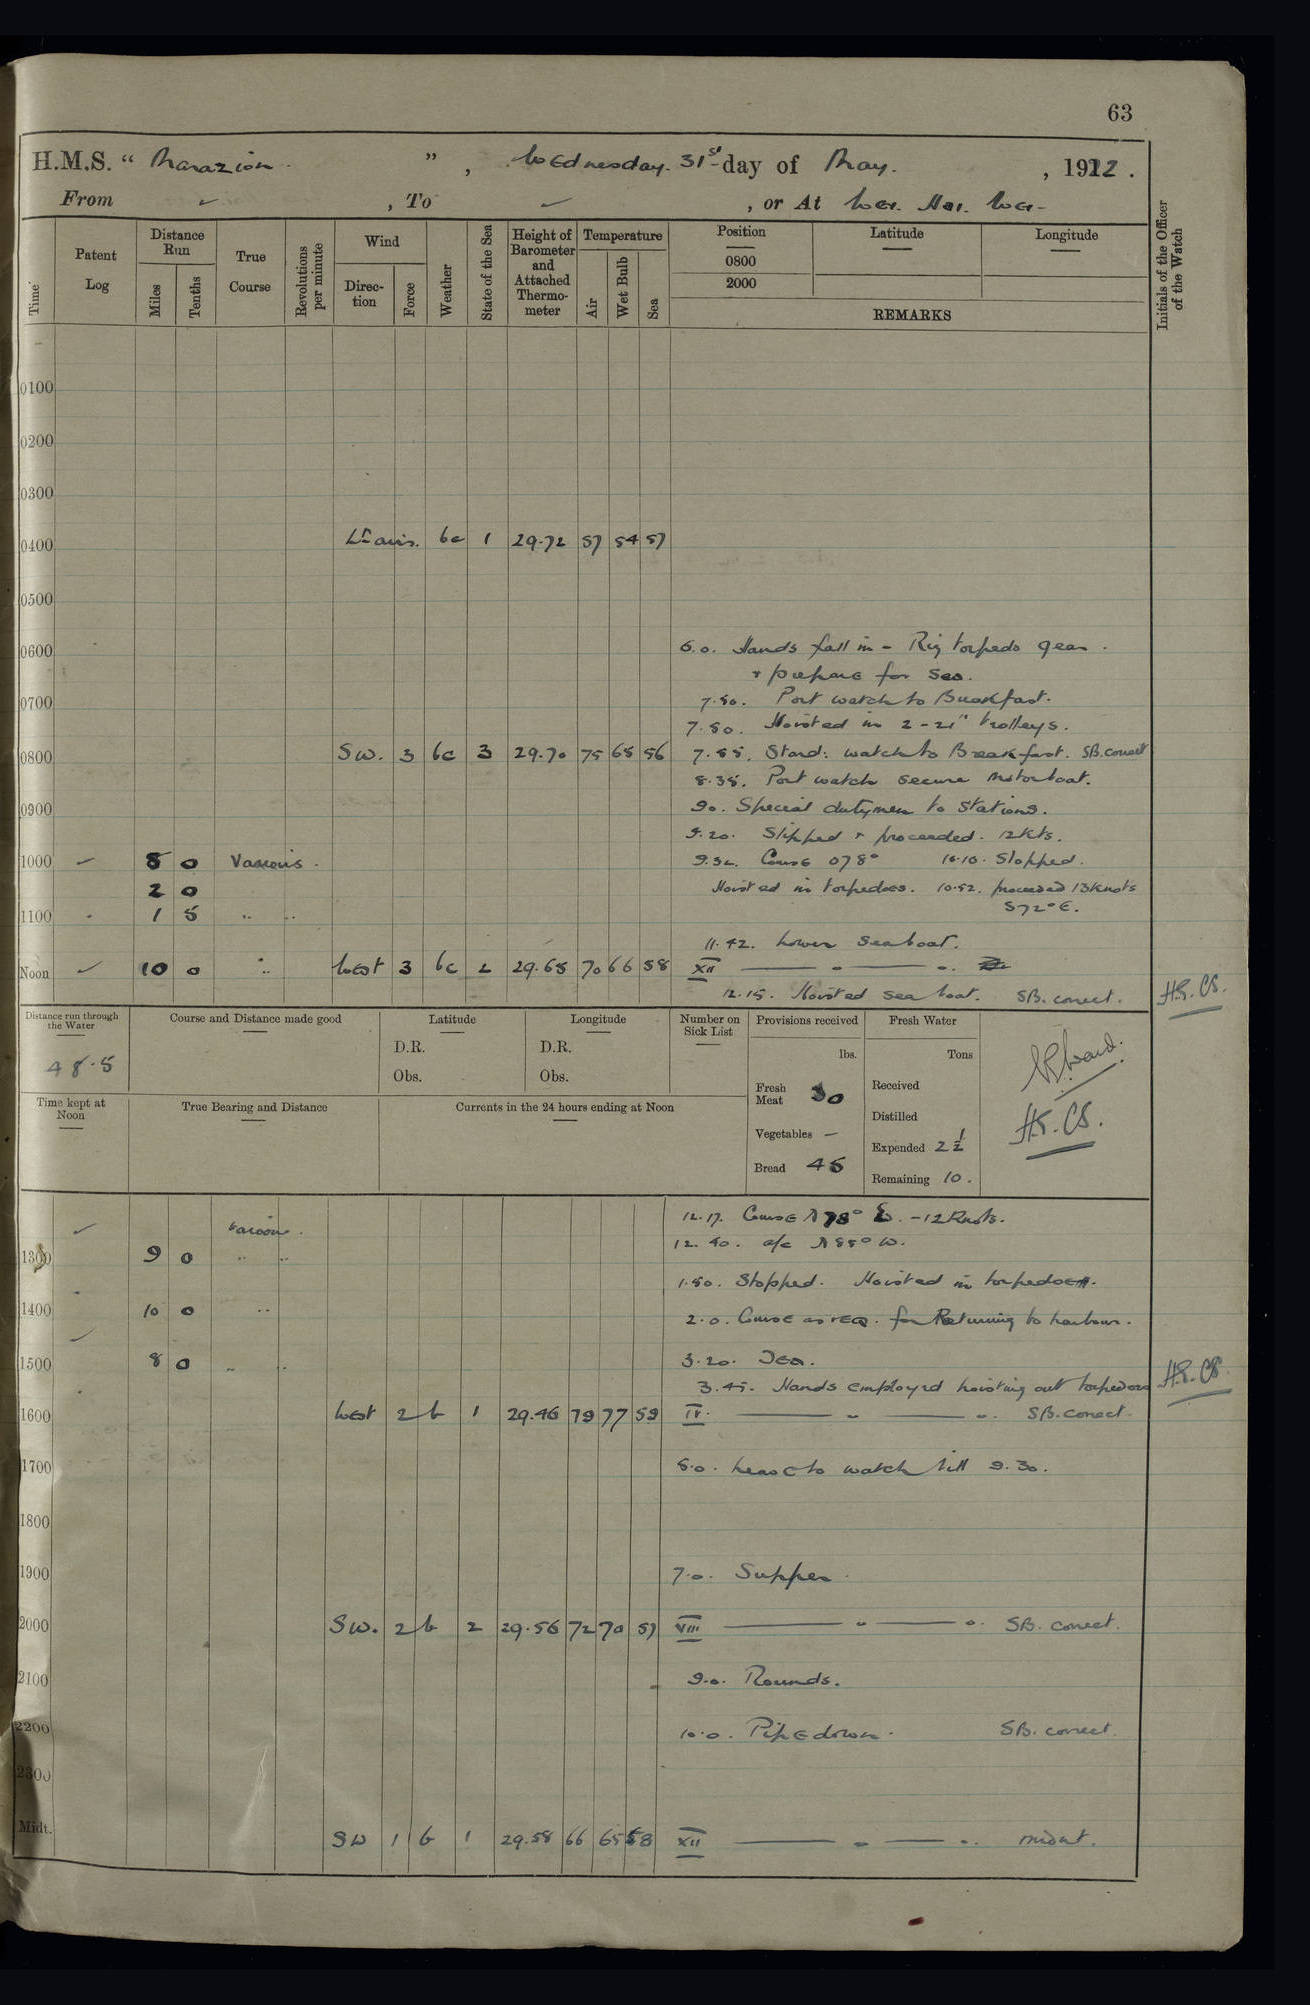 63
H.M.S. " Marazion. " , Wednesday. 31st day of May. , 1922.
From ✓ , To ✓ , or At Wei. Hai. Wei-
Time
Patent Log
Distance Run
Miles
Tenths
True Course
Revolutions per minute
Wind
Direction
Force
Weather
State of the Sea
Height of Barometer and Attached Thermometer
Temperature
Air
Wet Bulb
Sea
Position
0800
2000
Latitude
Longitude
REMARKS
Initials of the Officer of the Watch
0100
0200
0300
0400 Lt airs. bc 1 29.72 57 54 57
0500
0600 6.0. Hands fall in - Rig torpedo gear.
+ prepare for sea.
0700 7.30. Port watch to Breakfast.
7.50. Hoisted in 2 - 21" trolleys.
0800 SW. 3 bc 3 29.70 75 68 56 7.55. Starb: watch to Breakfast. SB. correct
8.35. Port watch secure motorboat.
0900 9.0. Special dutymen to stations.
9.20. Slipped + proceeded. 12kts.
1000 ✓ 8 0 Various. 9.32. Course 078° 10.10. Stopped.
2 0 Hoisted in torpedoes. 10.52. proceeded 13knots
1100 1 5 " " S72°E.
11.42. Lower seaboat.
Noon ✓ 10 0 " West 3 bc 2 29.68 70 66 58 XII
12.15. Hoisted sea boat. SB. correct.
Distance run through the Water
48.5
Course and Distance made good
Latitude
D.R.
Obs.
Longitude
D.R.
Obs.
Number on Sick List
Provisions received
lbs.
Fresh Meat 30
Vegetables —
Bread 45
Fresh Water
Tons
Received
Distilled
Expended 2 1/2
Remaining 10.
Time kept at Noon
True Bearing and Distance
Currents in the 24 hours ending at Noon
✓ Various. 12.17. Course N 78° W. - 12 Knots.
12.40. a/c N 85° W.
1300 9 0 " "
1.50. Stopped. Hoisted in torpedoes.
1400 10 0 " 2.0. Course as req. for Returning to harbour.
1500 8 0 " " 3.20. Tea.
3.45. Hands employed hoisting out torpedoes
1600 West 2 b 1 29.46 79 77 59 IV. SB. correct.
1700 5.0. Leave to watch till 9.30.
1800
1900 7.0. Supper.
2000 SW. 2 b 2 29.56 72 70 57 VIII SB. correct.
2100 9.0. Rounds.
2200 10.0. Pipe down. SB. correct.
2300
Midt. SW 1 b 1 29.58 66 65 58 XII midnt.